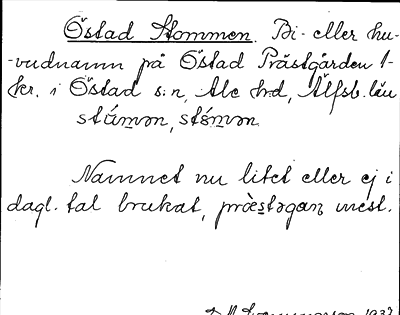 Östad Stommen. Bi- eller hu-
-vudnamn på Östad Prästgården 1-
kr. i Östad s:n, Ale hd, Älfsb. län
stúmən, stómən.
Namnet nu litet eller ej i
dagl. tal brukat, præ̀stəgaɳ mest.
1932